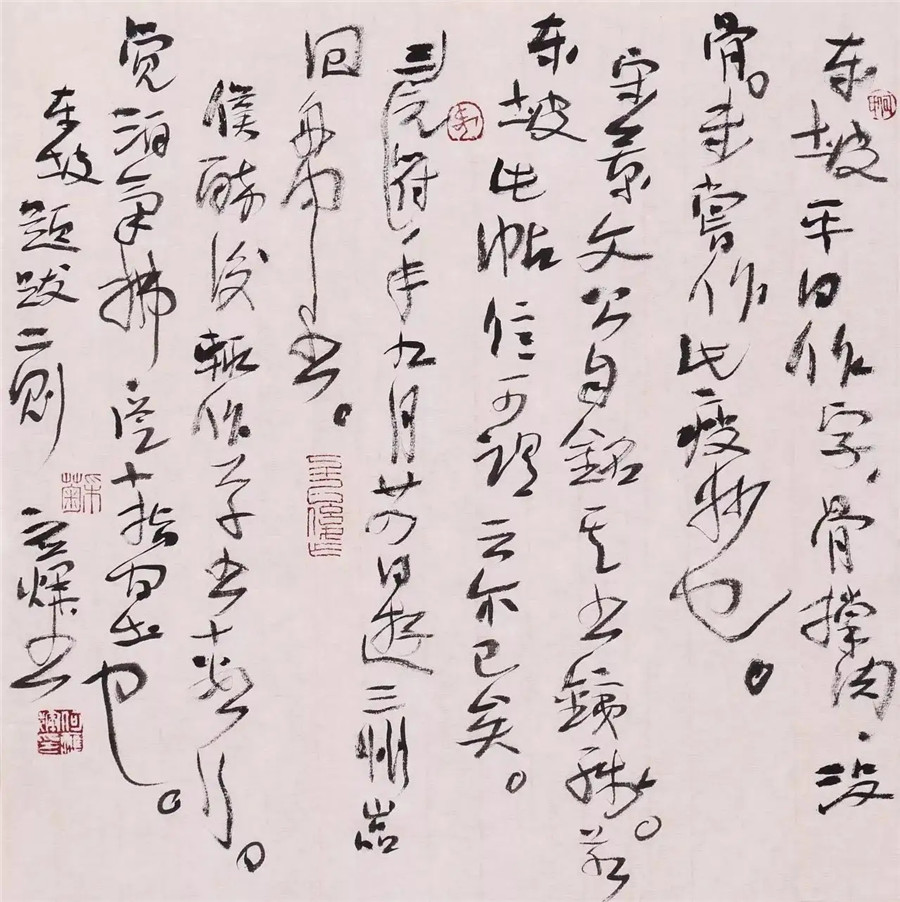 东坡平日作字、骨撑肉、没
骨。未尝作此瘦妙也。
宋景文公自铭其书铁线。若
东坡此帖信可谓云尔已矣。
三元符年九月廿四日游三州岩
回舟中书。
仆醉后辄作草书十数行。
觉酒气拂从十指间出也。
东坡题跋二则 书